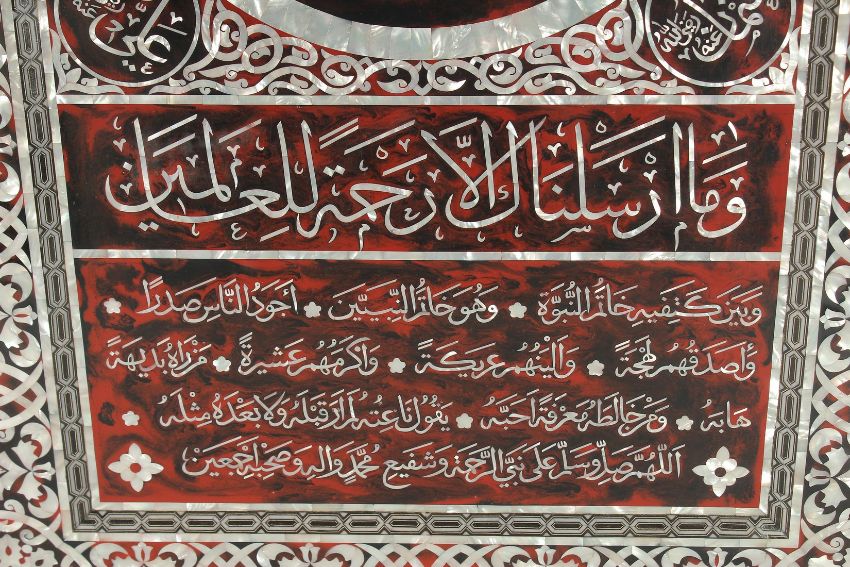 عثمان رضي الله عنه
علي
وما أرسلناك إلا رحمة للعالمين
وبين كتفيه خاتم النبوة وهو خاتم النبيين أجود الناس صدرا
وأصدقهم لهجة وألينهم عريكة وأكرمهم عشيرة من رآه بديهة
هابه ومن خالطه معرفة أحبه يقول ناعته لم أر قبله ولا بعده مثله
اللهم صل وسلم على نبي الرحمة وشفيع محمد واله وصحبه أجمعين